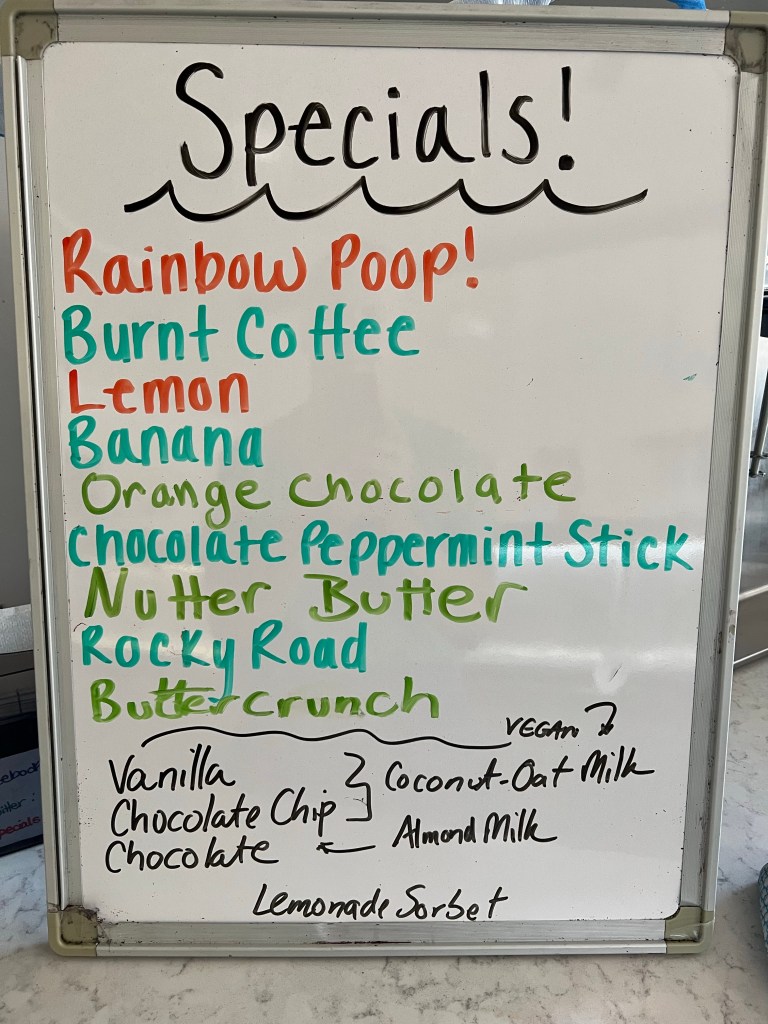 Specials!
Rainbow Poop!
Burnt Coffee
Lemon
Banana
Orange Chocolate
Chocolate Peppermint Stick
Nutter Butter
Rocky Road
Buttercrunch
VEGAN
Vanilla
Chocolate Chip
Coconut-Oat Milk
Chocolate
Almond Milk
Lemonade Sorbet